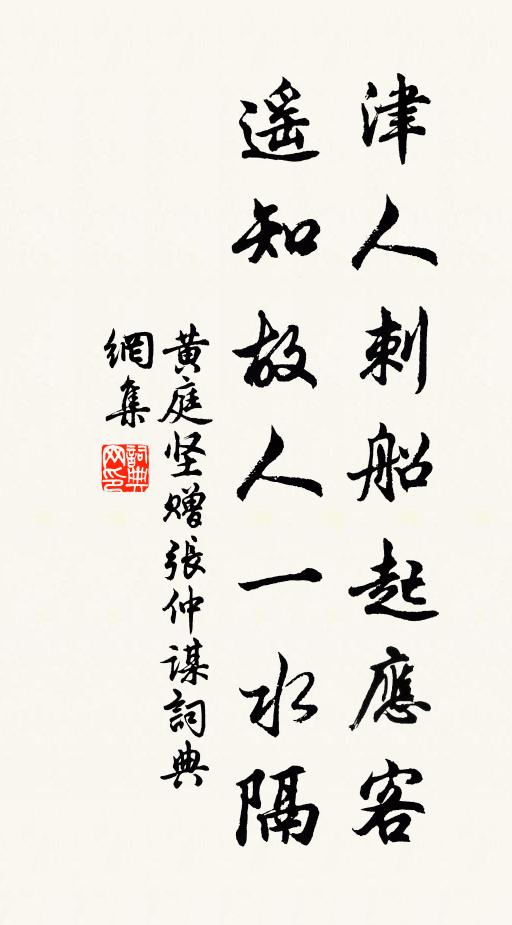 津人刺船起應客
遥知故人一水隔
黄庭坚赠張仲谋詞典
網集
詞典网印